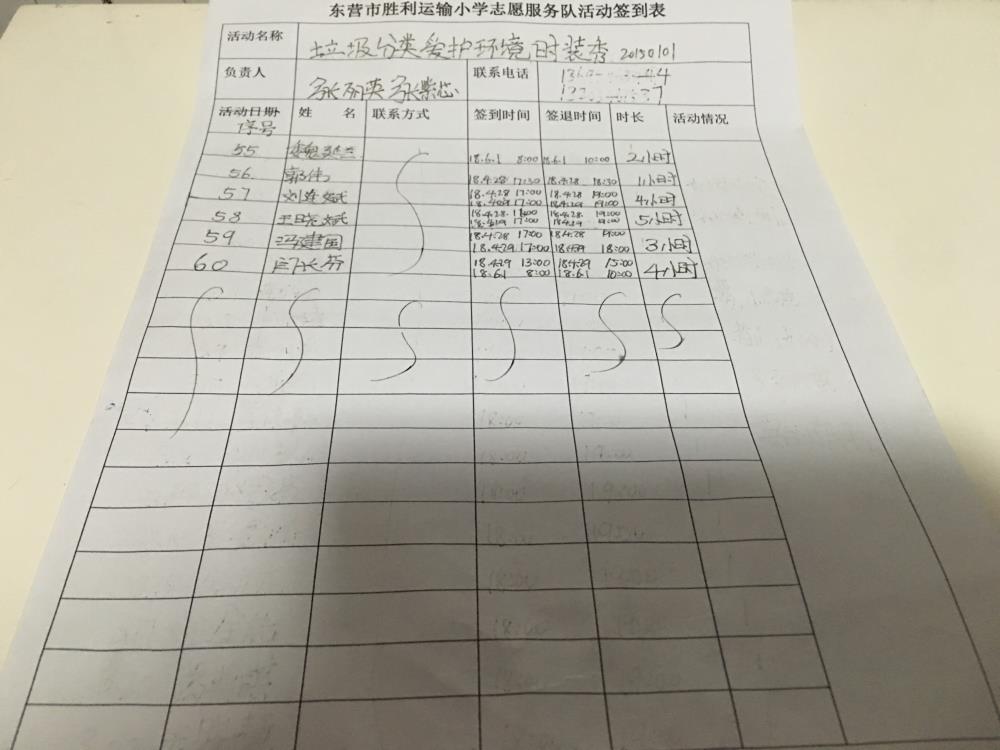 东营市胜利运输小学志愿服务队活动签到表
活动名称 垃圾分类爱护环境时装秀 20150101
负责人 张丽英 张紫芯 联系电话
活动日期 姓 名 联系方式 签到时间 签退时间 时长 活动情况
序号
55 18.6.1 8:00 18.6.1 10:00 2小时
56 郭伟 18.4.28 17:30 18.4.28 18:30 1小时
57 18.4.28 17:00 18.4.28 19:00 4小时
18.4.29 17:00 18.4.29 19:00
58 18.4.28 18.4.28 19:00 5小时
18.4.29 17:00 18.4.29
59 冯建国 18.4.28 17:00 18.4.28 19:00 3小时
18.4.29 17:00 18.4.29 18:00
60 18.4.29 13:00 18.4.29 15:00 4小时
18.6.1 8:00 18.6.1 10:00